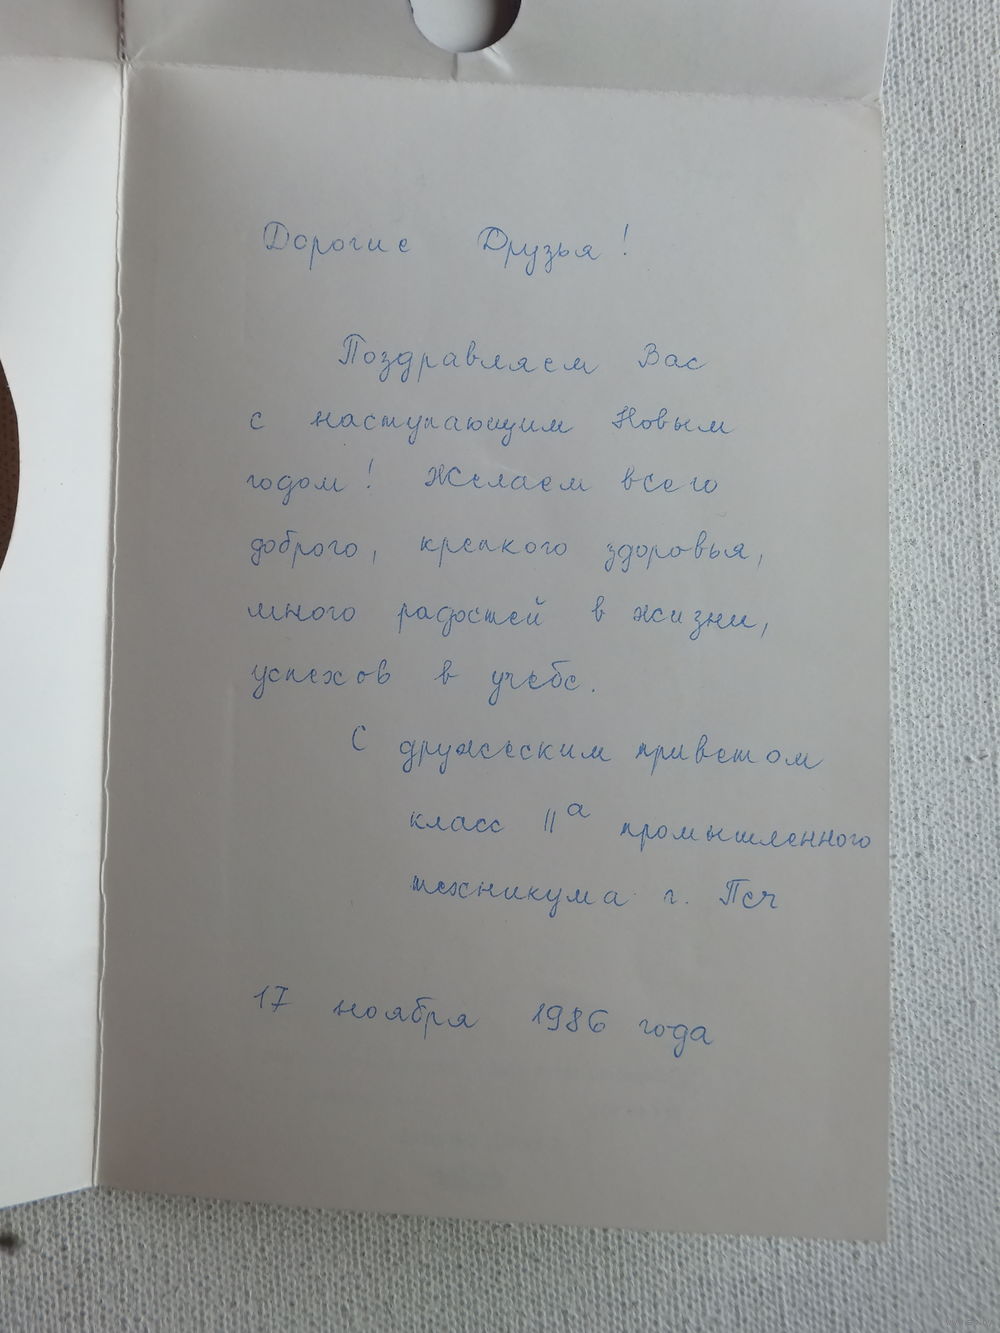 Дорогие Друзья!
Поздравляем Вас
с наступающим Новым
годом! Желаем всего
доброго, крепкого здоровья,
много радостей в жизни,
успехов в учебе.
С дружеским приветом
класс IIа промышленного
техникума г. Печ
17 ноября 1986 года